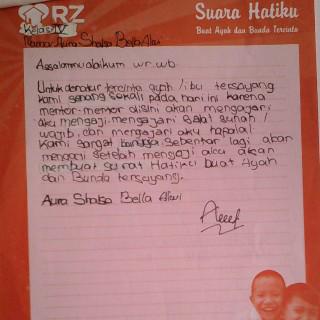 RZ
Suara Hatiku
Buat Ayah dan Bunda Tercinta
Kelas IV
Nama: Aura Shalsa Bella Alwi
Assalamu alaikum wr.wb.
Untuk donatur tercinta ayah / ibu tersayang
kami senang sekali pada hari ini karena
mentor-mentor disini akan mengajari
aku mengaji, mengajari salat sunah /
wajib, dan mengajari aku
Kami sangat bangga. Sebentar lagi akan
mengaji setelah mengaji aku akan
membuat surat Hatiku buat Ayah
dan Bunda tersayang.
Aura Shalsa Bella Alwi